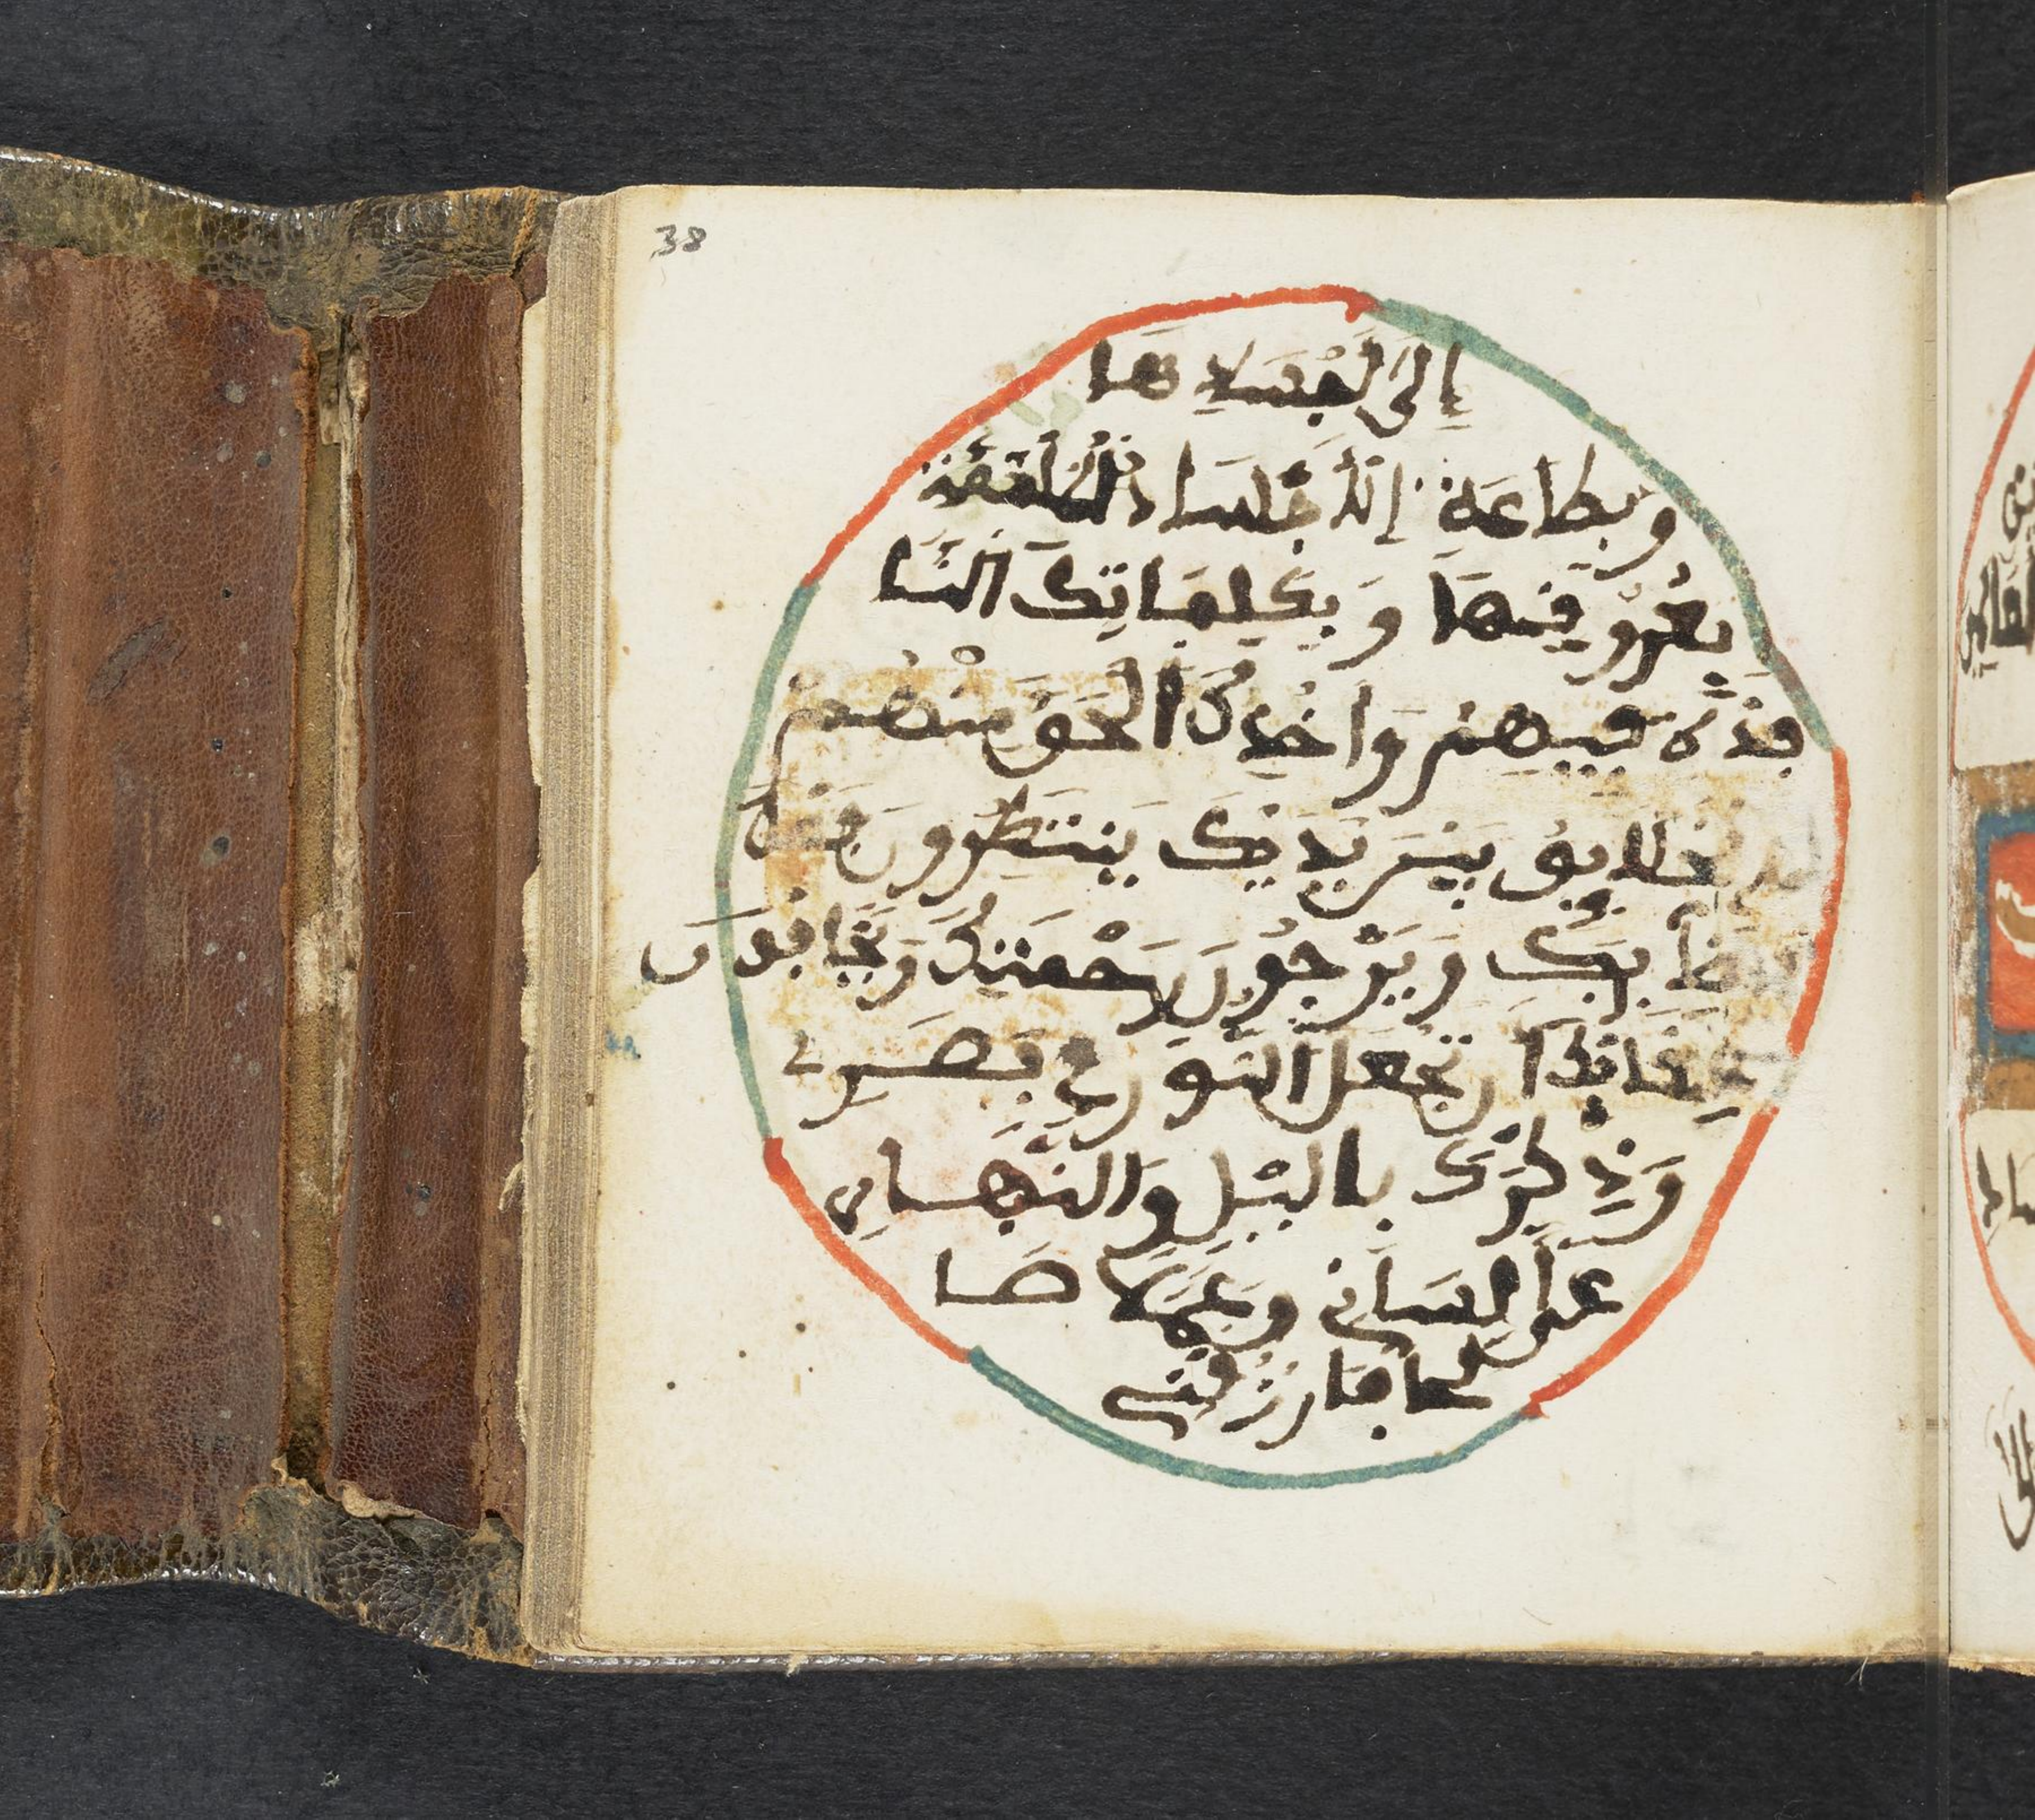 38
إِلَىٰ لَجْسَادِهَا
وَبِطَاعَةِ اِلَاجْسَادِ الملتئمة
بِعُرُوفِهَا وَبِكَلِمَاتِكَ النَّا
فِذَةِ فِيهِمْ وَاَخْذِكَ الْحَقَّ مِنْهُمْ
خَلَايِقُ بَيْنَ يَدَيْكَ يَنْتَظِرُونَ فَصْلَ
قَضَايِكَ وَيَرْجُونَ رَحْمَتَكَ وَيَخَافُونَ
عِقَابَكَ أَن تَجْعَلَ النُّورَ فِي بَصَرِي
وَذِكْرَكَ بِالَّيْلِ وَالنَّهَارِ
عَلَىٰ لِسَانِي وَعَمَلًا صَا
لِحًا فَارْزُقْنِي